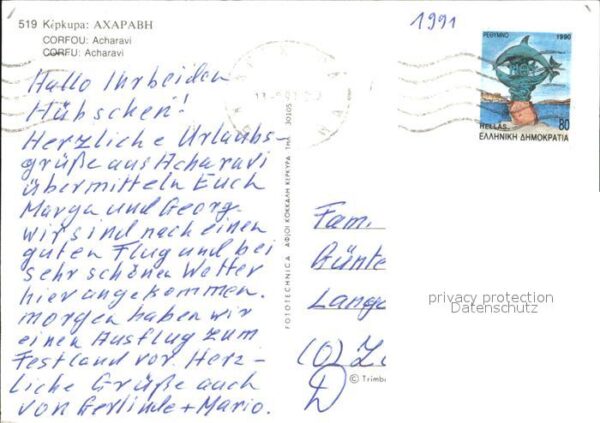 519 Κέρκυρα: ΑΧΑΡΑΒΗ
CORFOU: Acharavi
CORFU: Acharavi
1991
ΡΕΘΥΜΝΟ 1990
HELLAS 80
ΕΛΛΗΝΙΚΗ ΔΗΜΟΚΡΑΤΙΑ
Hallo Ihr beiden
Hübschen!
Herzliche Urlaubs-
grüße aus Acharavi
übermitteln Euch
Marga und Georg.
wir sind nach einen
guten Flug und bei
sehr schönen Wetter
hier angekommen.
morgen haben wir
einen Ausflug zum
Festland vor. Herz-
liche Grüße auch
von Gerlinde + Mario.
FOTOTECHNICA ΑΦΙΟΙ ΚΟΚΚΑΛΗ ΚΕΡΚΥΡΑ ΤΗΛ. 30105
Fam.
Günte
Lange
(O)
D
privacy protection
Datenschutz
© Trimb